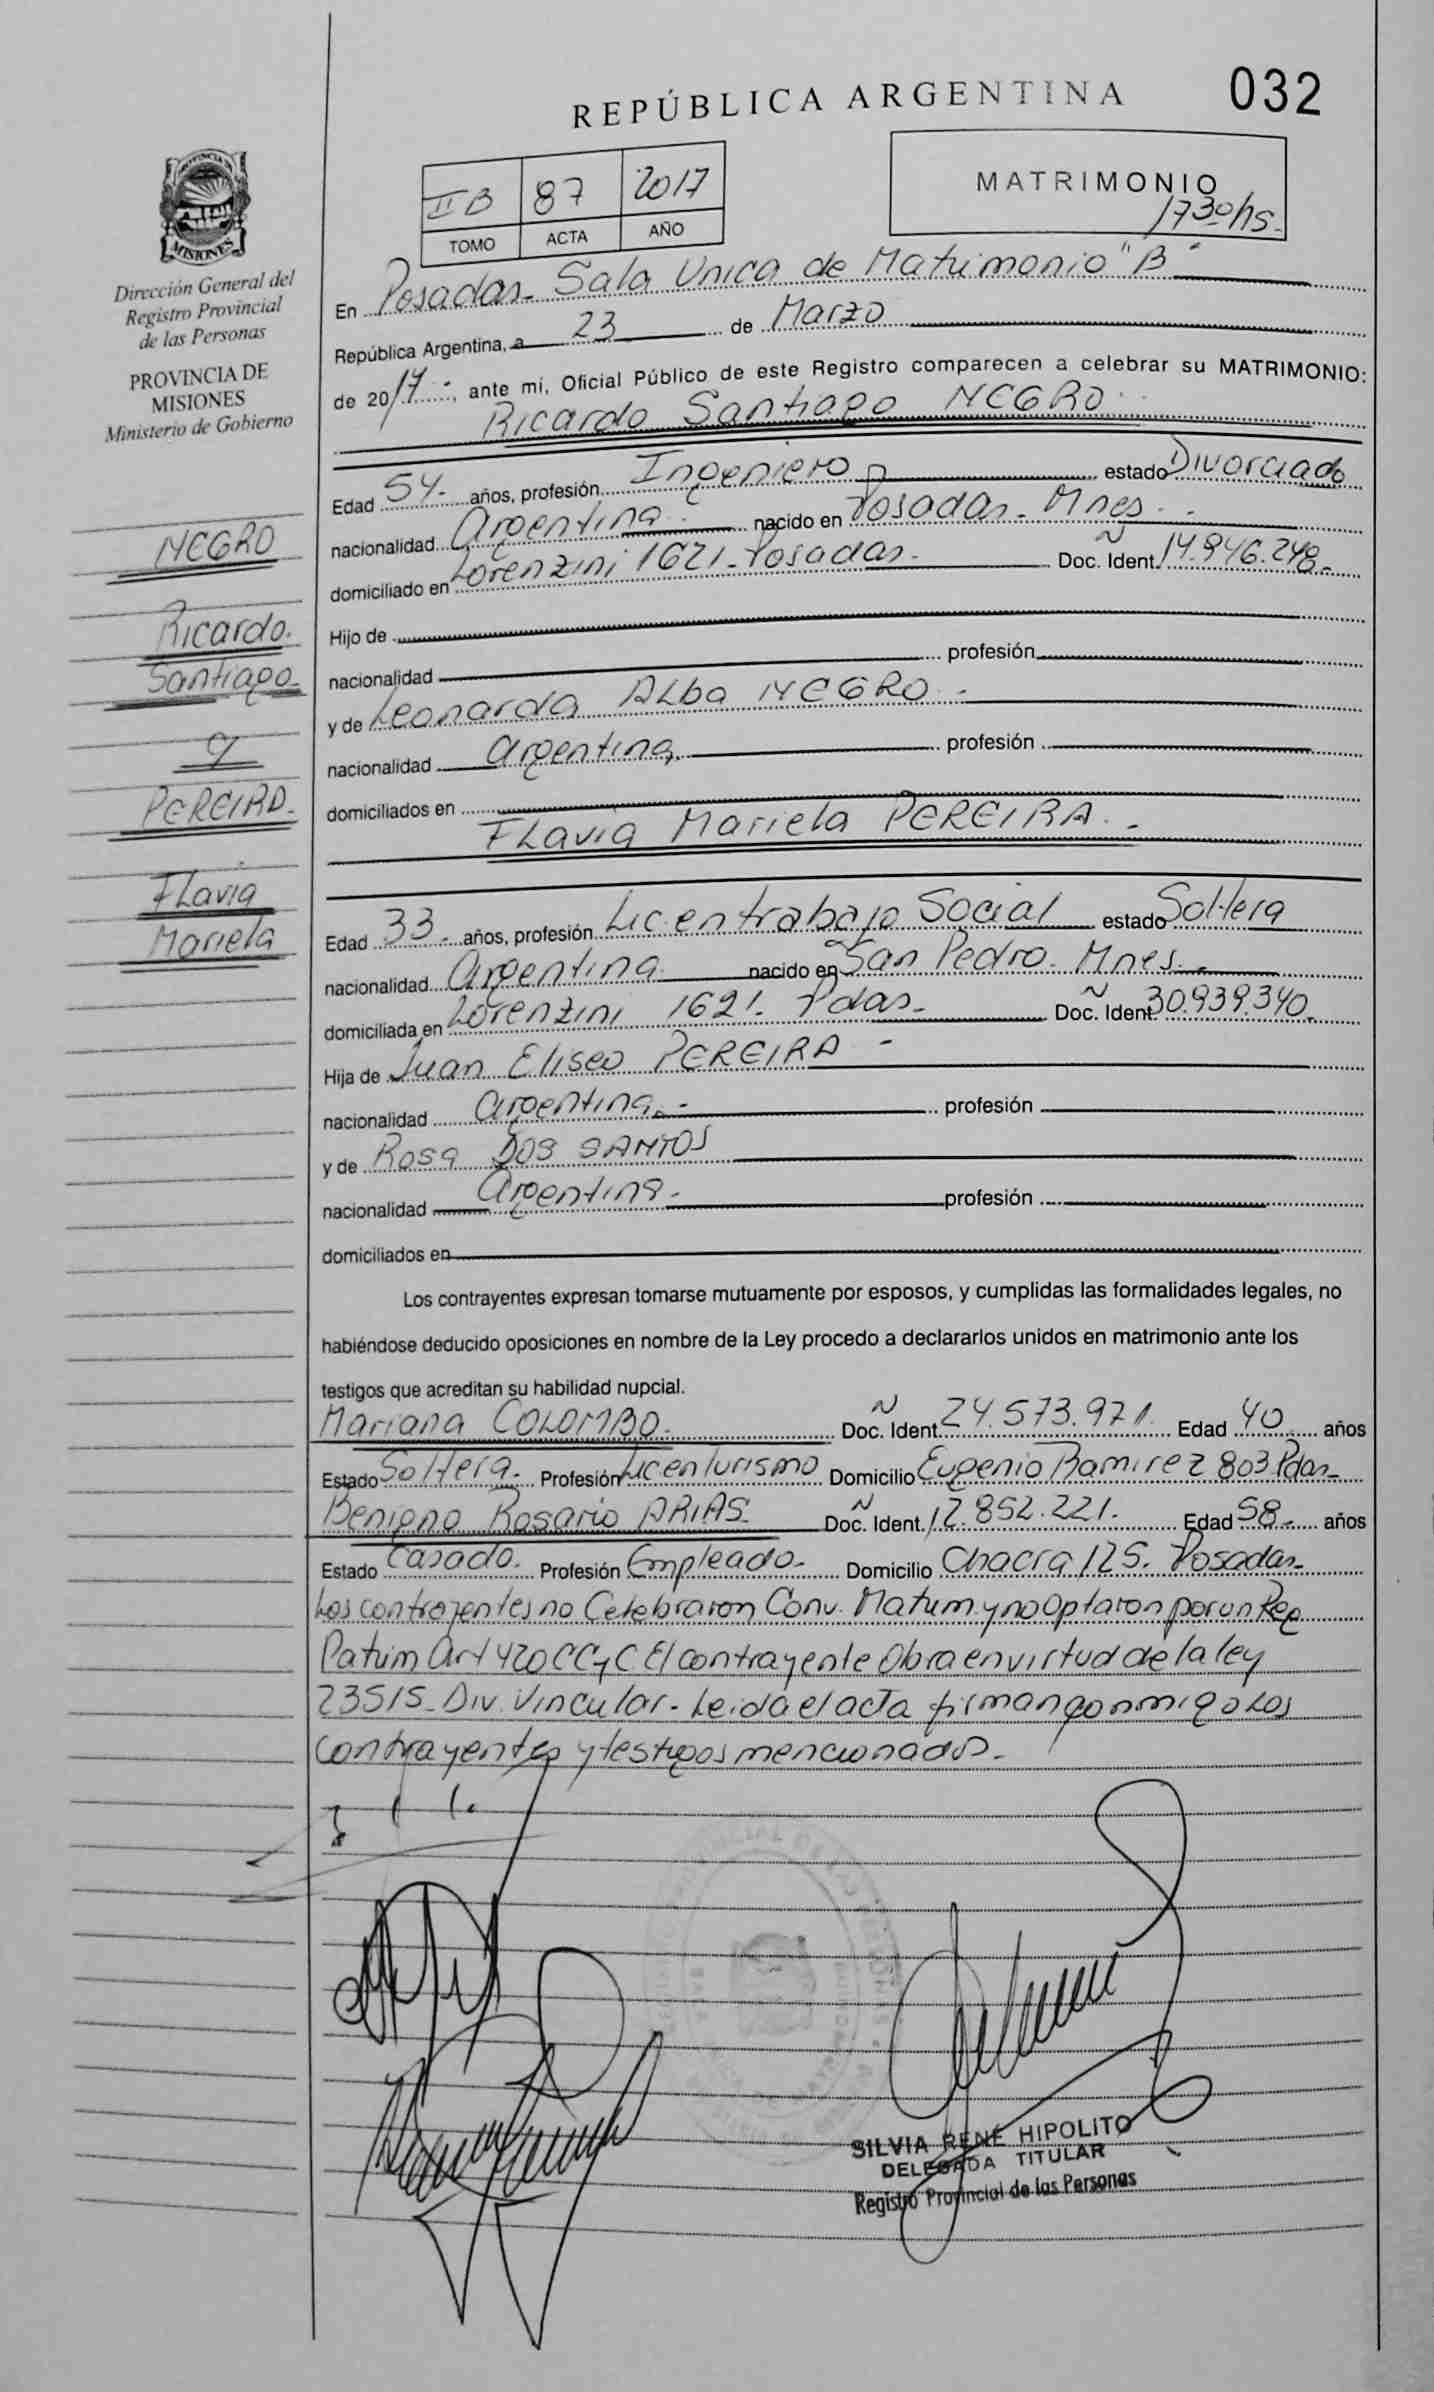 REPÚBLICA ARGENTINA 032
MATRIMONIO
1730hs.
II B 87 2017
TOMO ACTA AÑO
MISIONES
Dirección General del
Registro Provincial
de las Personas
PROVINCIA DE
MISIONES
Ministerio de Gobierno
NEGRO
Ricardo.
Santiago
y
PEREIRA.
Flavia
Mariela
En Posadas. Sala Unica de Matrimonio "B"
República Argentina, a 23 de Marzo
de 2017.-, ante mí, Oficial Público de este Registro comparecen a celebrar su MATRIMONIO:
Ricardo Santiago NEGRO.
Edad 54. años, profesión Ingeniero estado Divorciado
nacionalidad Argentina. nacido en Posadas. Mnes.
domiciliado en Lorenzini 1621. Posadas. Doc. Ident. 14.946.248.
Hijo de
nacionalidad profesión
y de Leonarda Alba NEGRO.
nacionalidad argentina. profesión
domiciliados en
Flavia Mariela PEREIRA.
Edad 33. años, profesión Lic en trabajo Social estado Soltera
nacionalidad Argentina nacido en San Pedro. Mnes.
domiciliada en Lorenzini 1621. Pdas. Doc. Ident 30.939.340.
Hija de Juan Eliseo PEREIRA
nacionalidad argentina. profesión
y de Rosa DOS SANTOS
nacionalidad argentina. profesión
domiciliados en
Los contrayentes expresan tomarse mutuamente por esposos, y cumplidas las formalidades legales, no
habiéndose deducido oposiciones en nombre de la Ley procedo a declararlos unidos en matrimonio ante los
testigos que acreditan su habilidad nupcial.
Mariana COLOMBO. Doc. Ident. 24.573.971. Edad 40 años
Estado Soltera. Profesión Lic en Turismo Domicilio Eugenio Ramirez 803 Pdas.
Benigno Rosario ARIAS. Doc. Ident. 12.852.221. Edad 58. años
Estado Casado. Profesión Empleado. Domicilio Chacra 125. Posadas.
Los contrayentes no Celebraron Conv. Matrim. y no Optaron por un Reg
Patrim Art 420 CCyC El contrayente Obra en virtud de la ley
23515. Div. Vincular. Leida el acta firman conmigo Los
contrayentes y testigos mencionados.
SILVIA RENÉ HIPOLITO
DELEGADA TITULAR
Registro Provincial de las Personas